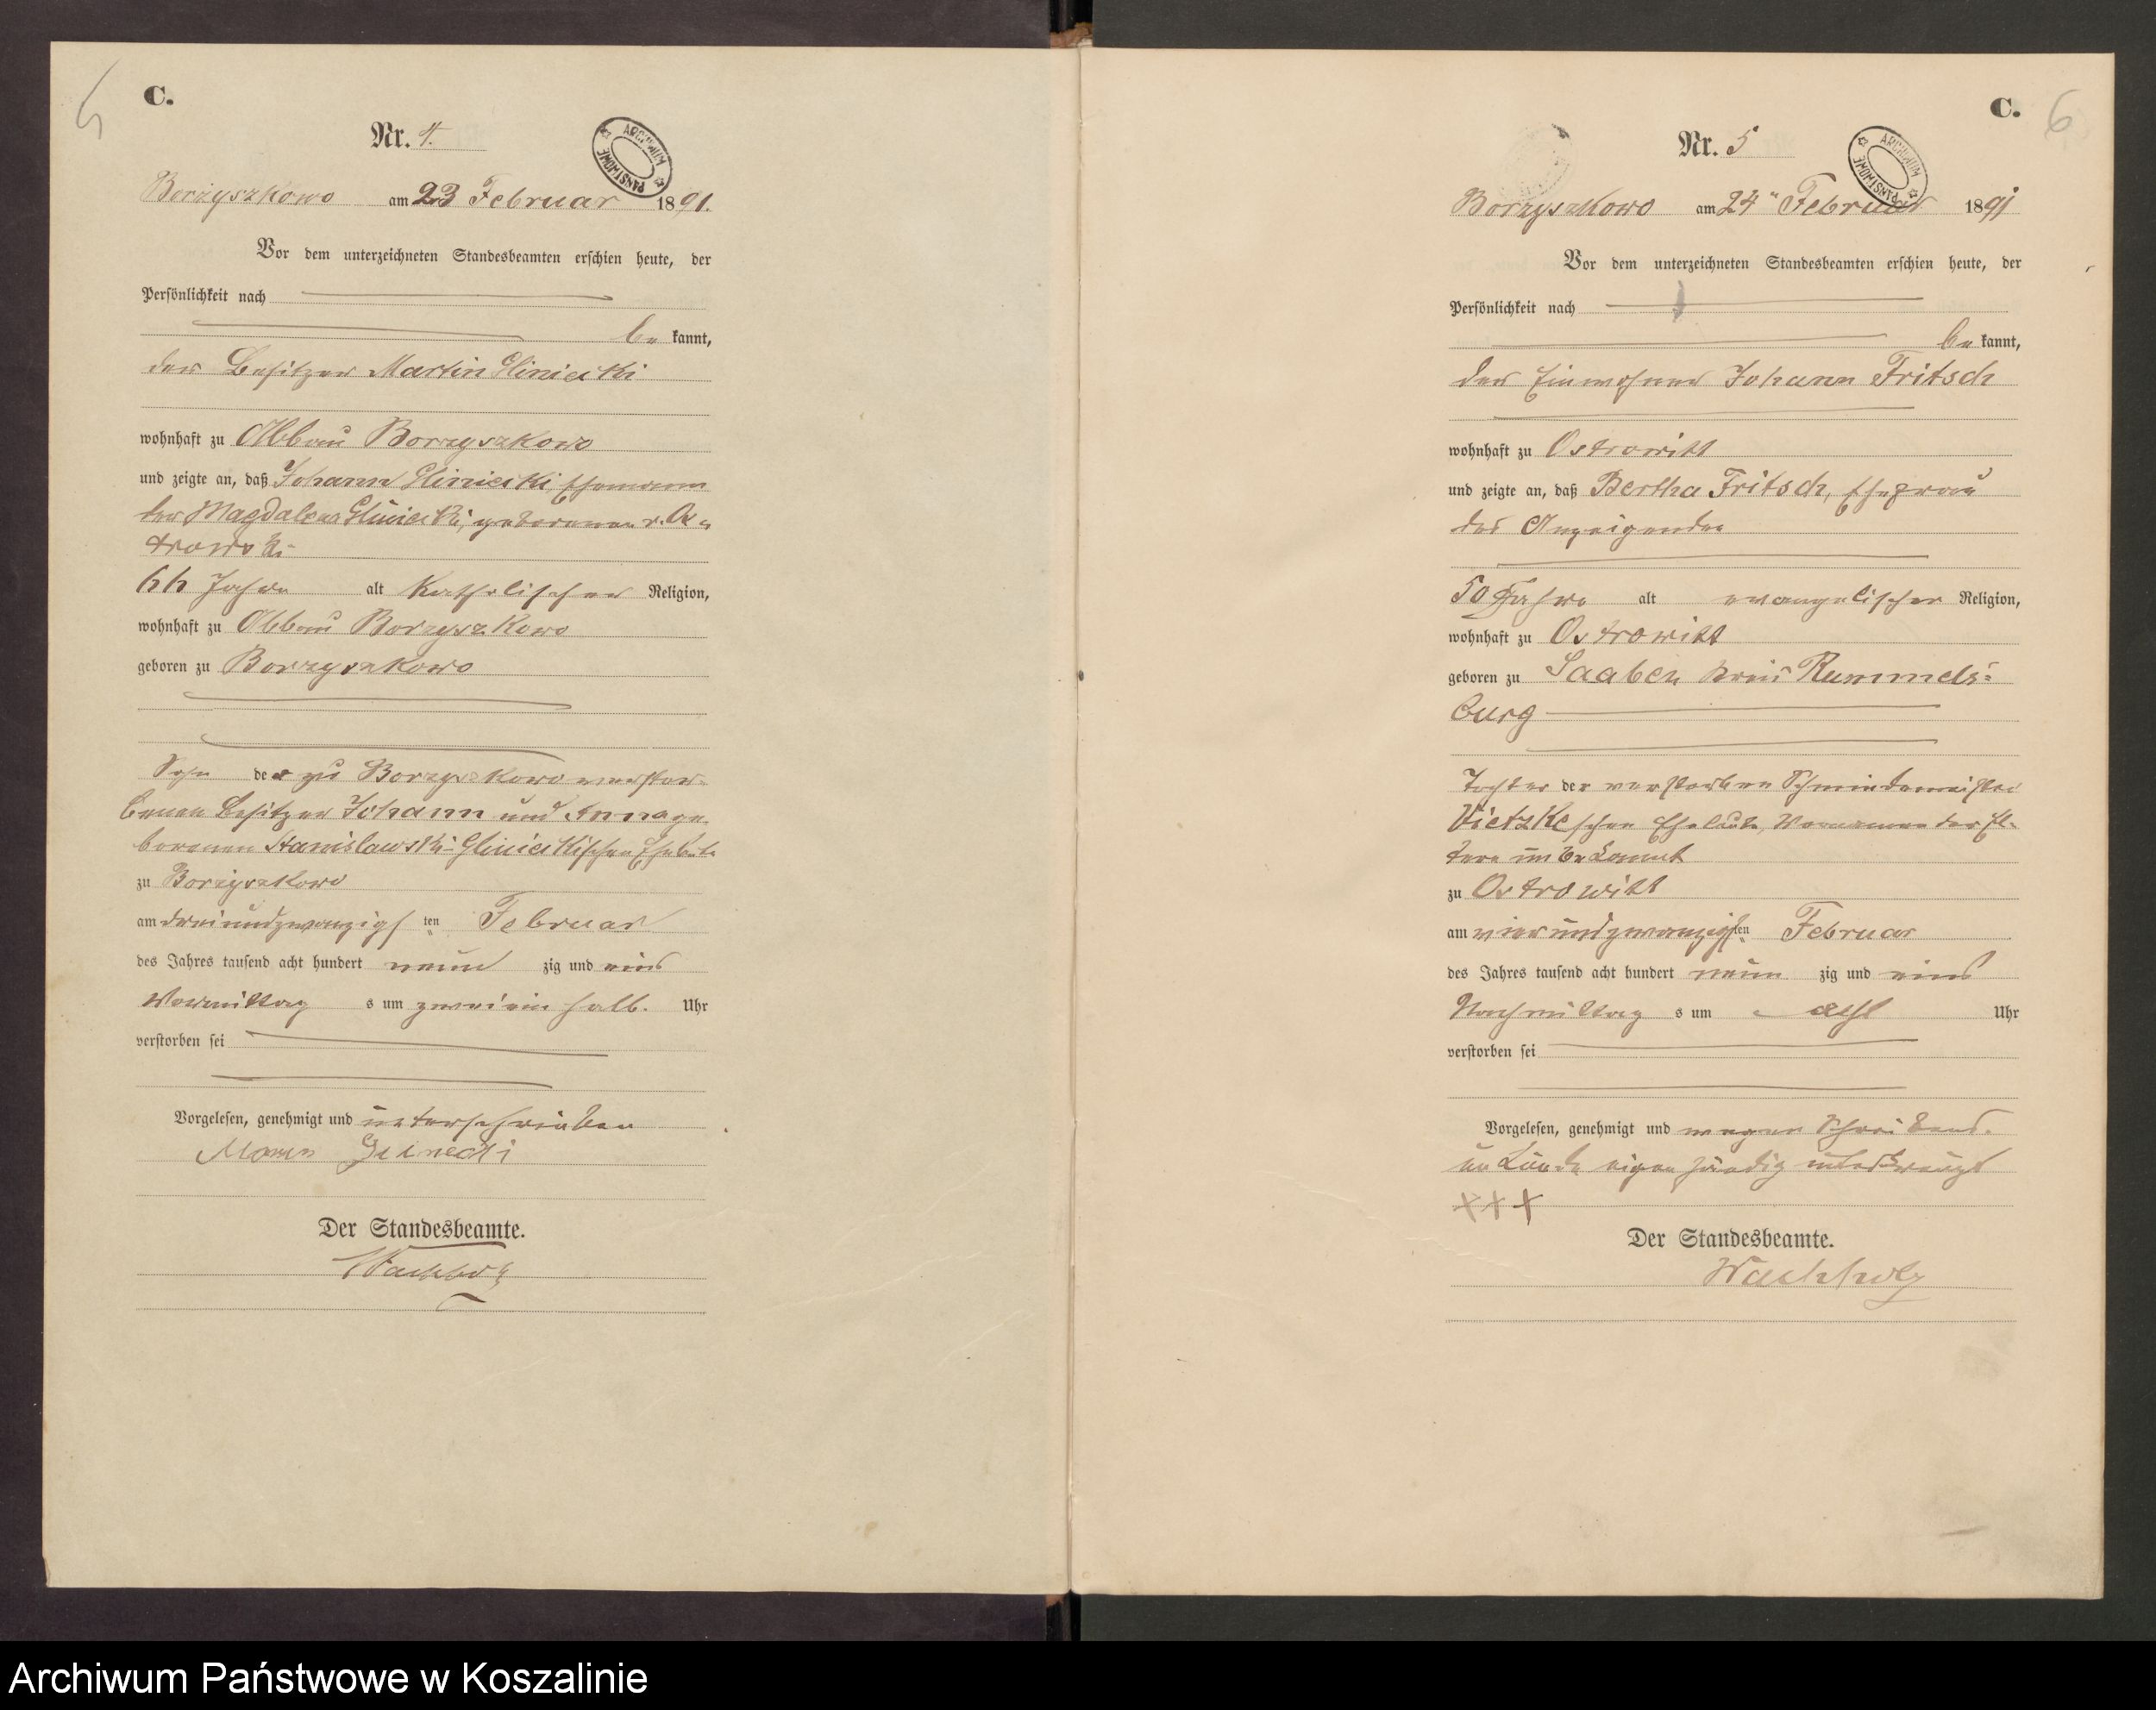 5
C.
Nr. 4.
ARCHIWUM PAŃSTWOWE
Borzyszkowo am 23 Februar 1891.
Vor dem unterzeichneten Standesbeamten erschien heute, der
Persönlichkeit nach
be kannt,
der Besitzer Martin Gliniecki
wohnhaft zu Abbau Borzyszkowo
und zeigte an, daß Johann Gliniecki, Ehemann
der Magdalena Gliniecki, geborenen v. Os-
trowski
66 Jahre alt katholischer Religion,
wohnhaft zu Abbau Borzyszkowo
geboren zu Borzyszkowo
Sohn der zu Borzyszkowo verstor-
benen Besitzer Johann und Anna ge-
borenen Stanislawski-Glinieckischen Eheleute
zu Borzyszkowo
am dreiundzwanzigsten Februar
des Jahres tausend acht hundert neun zig und eins
Vormittag s um zweieinhalb. Uhr
verstorben sei
Vorgelesen, genehmigt und unterschrieben
Glinecki
Der Standesbeamte.
Wachholz
C.
6
Nr. 5
ARCHIWUM PAŃSTWOWE
Borzyszkowo am 24ⁿ Februar 1891
Vor dem unterzeichneten Standesbeamten erschien heute, der
Persönlichkeit nach
be kannt,
der Einwohner Johann Fritsch
wohnhaft zu Ostrowitt
und zeigte an, daß Bertha Fritsch, Ehefrau
des Anzeigenden
50 Jahre alt evangelischer Religion,
wohnhaft zu Ostrowitt
geboren zu Saaben Kreis Rummels=
burg
Tochter der verstorbenen Schmiedemeister
Vietzkeschen Eheleute, Vornamen der El-
tern unbekannt
zu Ostrowitt
am vierundzwanzigsten Februar
des Jahres tausend acht hundert neun zig und eins
Nachmittag s um acht Uhr
verstorben sei
Vorgelesen, genehmigt und wegen Schreibens-
unkunde eigenhändig unterkreuzt
+++
Der Standesbeamte.
Wachholz
Archiwum Państwowe w Koszalinie